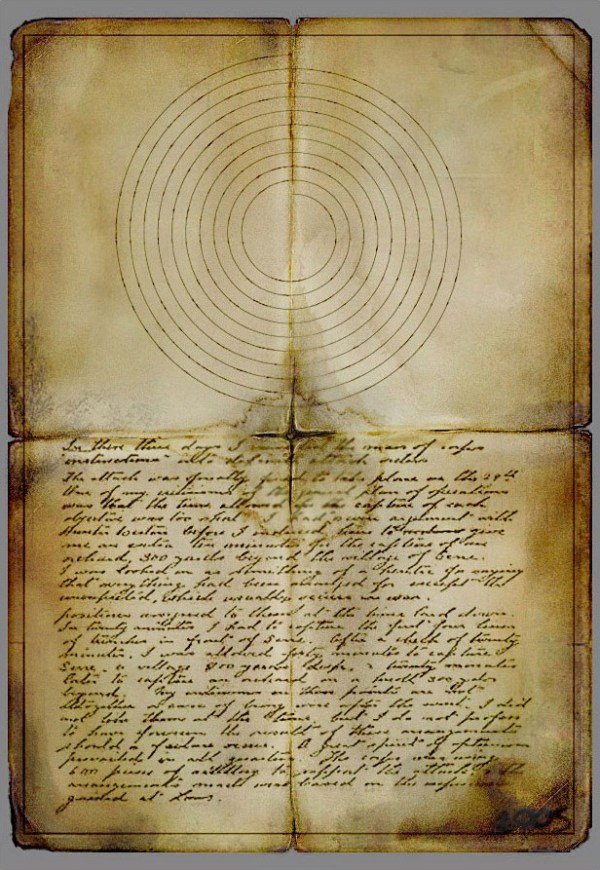 In these three days I the mass of corps
"instructions" into definite attack orders
The attack was finally fixed to take place on the 29th
One of my criticisms of the general plan of operations
was that the time allowed for the capture of each
objective was too short. I had a severe argument with
Hunter Weston before I induced him to give
me an extra ten minutes for the capture of an
orchard, 300 yards beyond the village of Serre.
I was looked on as something of a heretic for saying
that everything had been arranged for except the
unexpected, which usually occurs in war.
positions assigned to them at the time laid down.
In twenty minutes I had to capture the first four lines
of trenches in front of Serre. After a check of twenty
minutes, I was allowed forty minutes to capture
Serre, a village 800 yards deep, & twenty minutes
later to capture an orchard on a knoll 300 yards
beyond. My criticisms on these points are not
altogether a case of being wise after the event. I did
not like them at the time, but I do not profess
to have foreseen the result of these arrangements
should a failure occur. A great spirit of optimism
prevailed in all quarters. The corps was using
600 pieces of artillery to support the attack & the
arrangements made were based on the experience
gained at Loos.